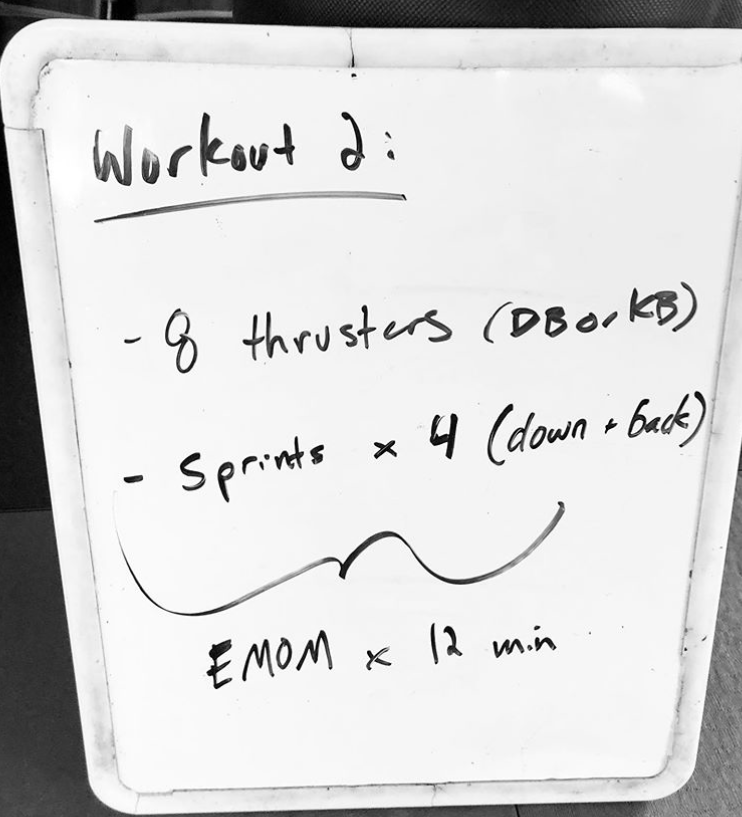 Workout 2:
- 8 thrusters (DB or KB)
- Sprints x 4 (down + back)
EMOM x 12 min